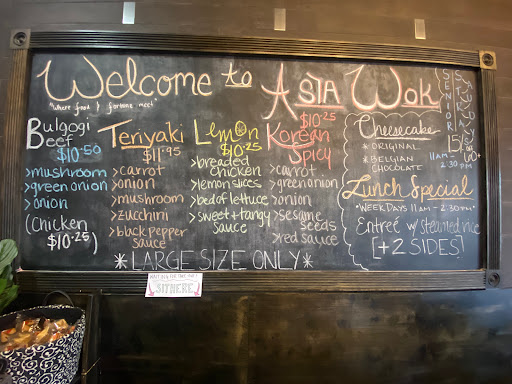 Welcome to Asta Wok
"where food & fortune meet"
Bulgogi
Beef
$10.50
> mushroom
> green onion
> onion
(Chicken
$10.25)
Teriyaki
$11.95
> carrot
> onion
> mushroom
> zucchini
> black pepper
sauce
Lemon
$10.25
> breaded
chicken
> lemon slices
> bed of lettuce
> sweet + tangy
sauce
$10.25
Korean
Spicy
> carrot
> green onion
> onion
> sesame
seeds
> red sauce
*LARGE SIZE ONLY*
Cheesecake
* ORIGINAL
* BELGIAN
CHOCOLATE
SENIOR
15%
60+
11AM -
2:30 PM
Lunch Special
• WEEKDAYS 11AM - 2:30PM •
Entreé w/ steamed rice
[+2 SIDES]
SIT HERE